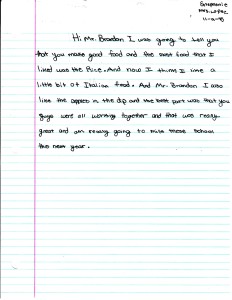 Stephanie
Mrs. Lopez
Hi Mr. Brandon I was going to tell you
that you make good food and the best food that I
liked was the Rice. And now I think I like a
little bit of Italian food. And Mr. Brandon I also
like the apples in the dip and the best part was that you
guys were all working together and that was really
great and am really going to miss these school
this next year.